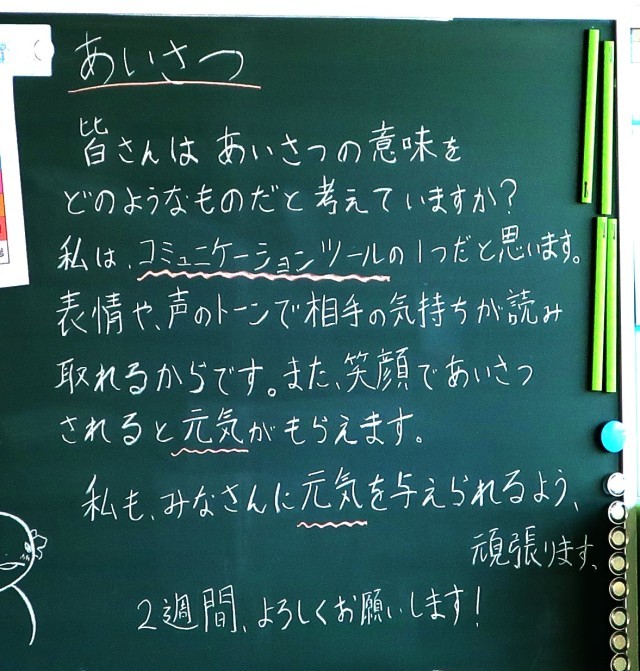 あいさつ
皆さんは あいさつの意味を
どのようなものだと考えていますか?
私は、コミュニケーションツールの1つだと思います。
表情や、声のトーンで相手の気持ちが読み
取れるからです。また、笑顔であいさつ
されると元気がもらえます。
私も、みなさんに元気を与えられるよう、
頑張ります、
2週間、よろしくお願いします!